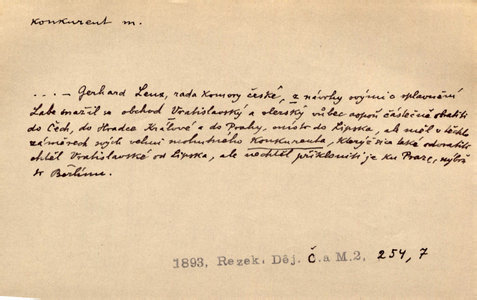 Konkurent m.
... – Gerhard Lenz, rada komory české, z návrhy svými o splavnění
Labe snažil se obchod Vratislavský a slezský vůbec aspoň částečně obrátiti
do Čech, do Hradce Králové a do Prahy, místo do Lipska, ale měl v těchto
záměrech svých velmi mohutného konkurenta, který sice také odvrátiti
chtěl Vratislavské od Lipska, ale nechtěl přikloniti je ku Praze, nýbrž
k Berlínu.
1893, Rezek. Děj. Č. a M. 2, 254, 7